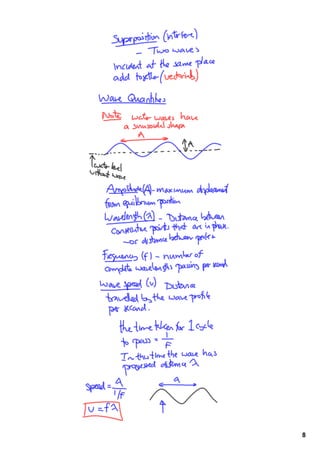 Superposition (interfere)
- Two waves
incident at the same place
add together (vectorially)
Wave Quantities
Note water waves have
a sinusoidal shape
λ
A
water level
without wave
Amplitude (A) - maximum displacement
from equilibrium position
Wavelength (λ) - Distance between
consecutive points that are in phase
- or distance between
Frequency (f) - number of
complete wavelengths passing per second
Wave speed (v) Distance
travelled by the wave profile
per second.
the time taken for 1 cycle
to pass = 1/f
In this time the wave has
progressed distance λ
Speed = λ
1/f
v = fλ
8